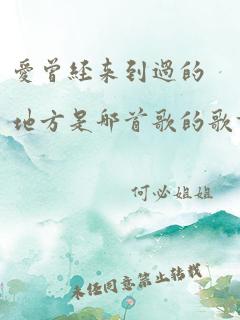 愛曾经来到過的
地方是那首歌的歌
何必姐姐
未经同意禁止转载